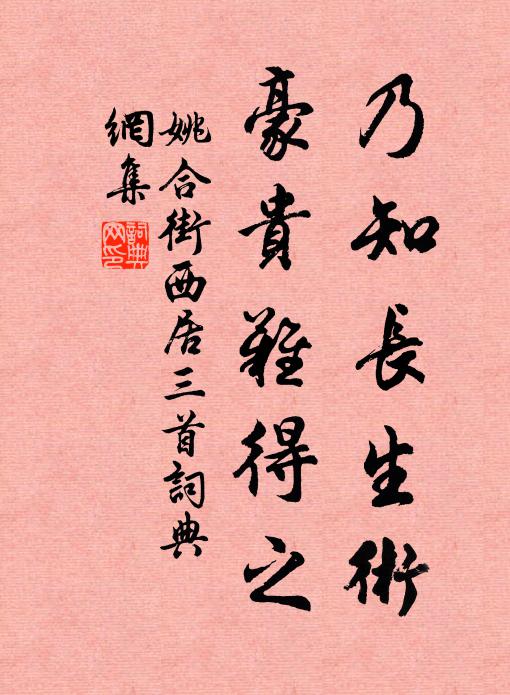 乃知長生術
豪貴難得之
姚合街西居三首詞典
網集
詞典
网印